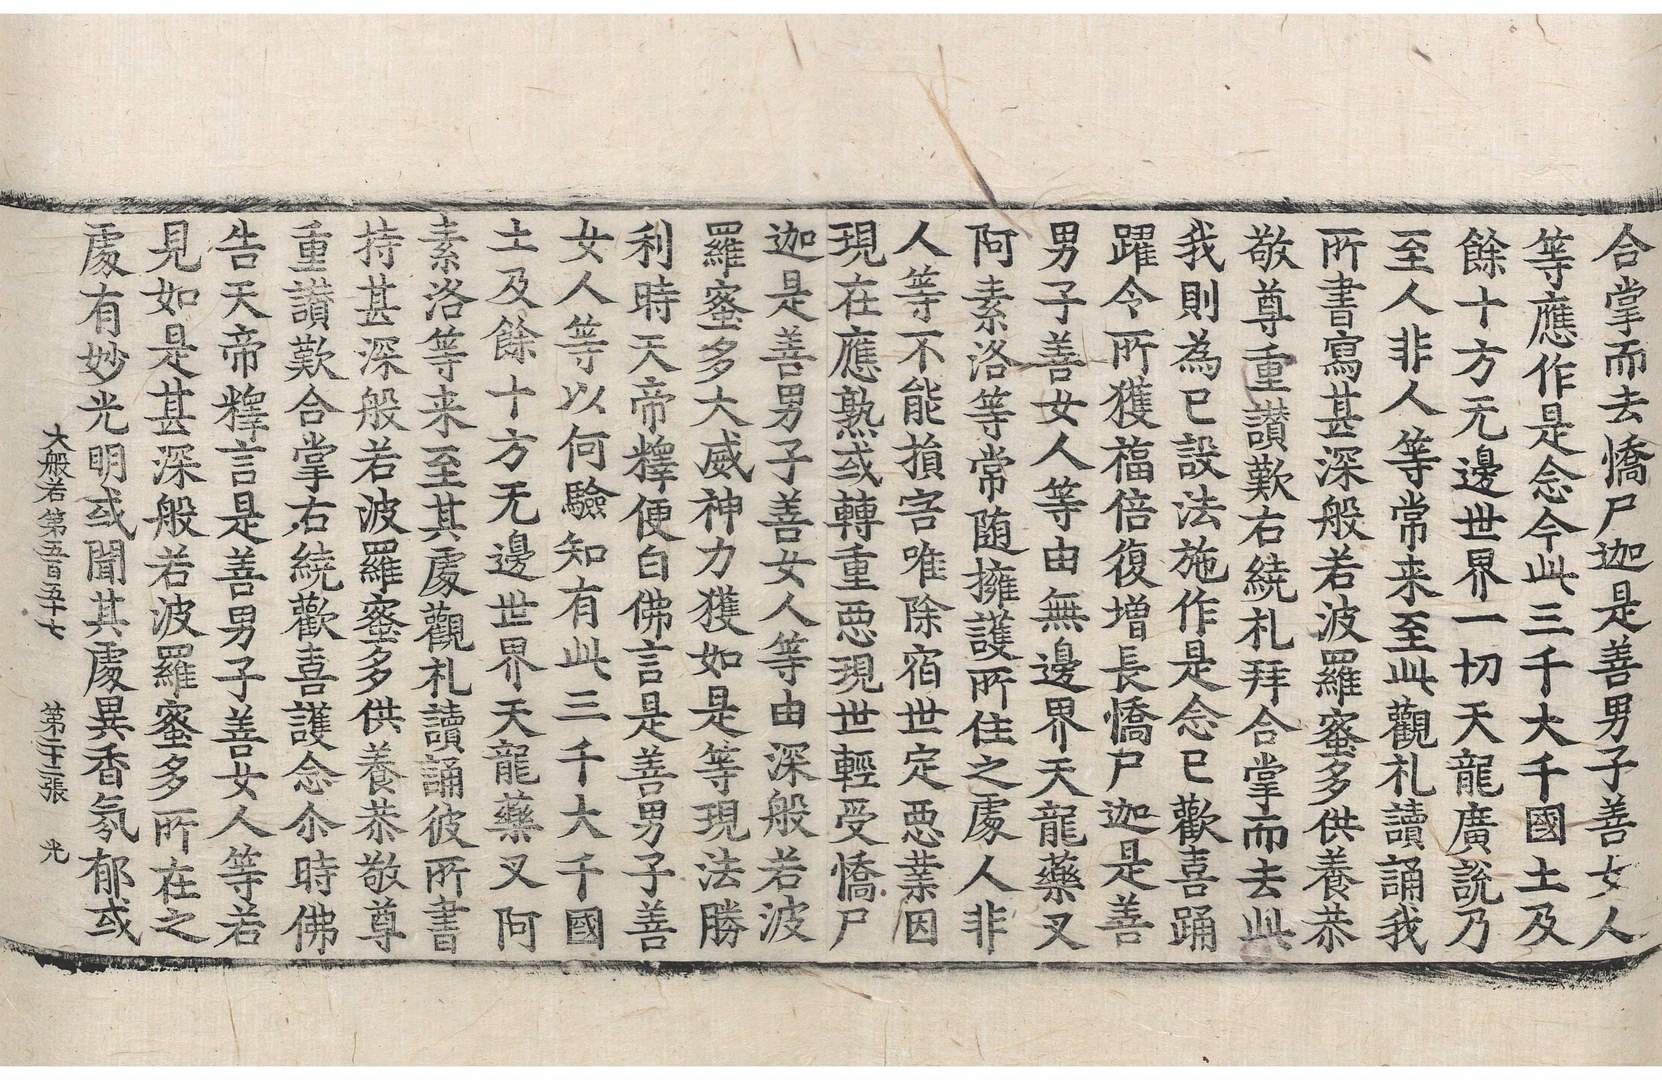 合掌而去憍尸迦是善男子善女人
等應作是念今此三千大千國土及
餘十方无邊世界一切天龍廣說乃
至人非人等常来至此觀礼讀誦我
所書寫甚深般若波羅蜜多供養恭
敬尊重讃歎右繞礼拜合掌而去此
我則為已設法施作是念已歡喜踊
躍令所獲福倍復增長憍尸迦是善
男子善女人等由無邊界天龍藥叉
阿素洛等常随擁護所住之處人非
人等不能損害唯除宿世定惡業因
現在應熟或轉重惡現世輕受憍尸
迦是善男子善女人等由深般若波
羅蜜多大威神力獲如是等現法勝
利時天帝釋便白佛言是善男子善
女人等以何驗知有此三千大千國
土及餘十方无邊世界天龍藥叉阿
素洛等来至其處觀礼讀誦彼所書
持甚深般若波羅蜜多供養恭敬尊
重讃歎合掌右繞歡喜護念尒時佛
告天帝釋言是善男子善女人等若
見如是甚深般若波羅蜜多所在之
處有妙光明或聞其處異香氛郁或
大般若第五百五十七 第二十二張 光